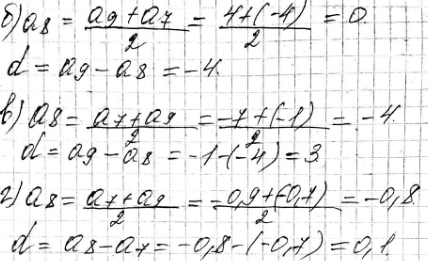 б) a8 = (a9 + a7)/2 = (4 + (-4))/2 = 0.
d = a9 - a8 = -4.
в) a8 = (a7 + a9)/2 = (-7 + (-1))/2 = -4.
d = a9 - a8 = -1 - (-4) = 3
г) a8 = (a7 + a9)/2 = (-0,9 + (-0,7))/2 = -0,8.
d = a8 - a7 = -0,8 - (-0,7) = 0,1.